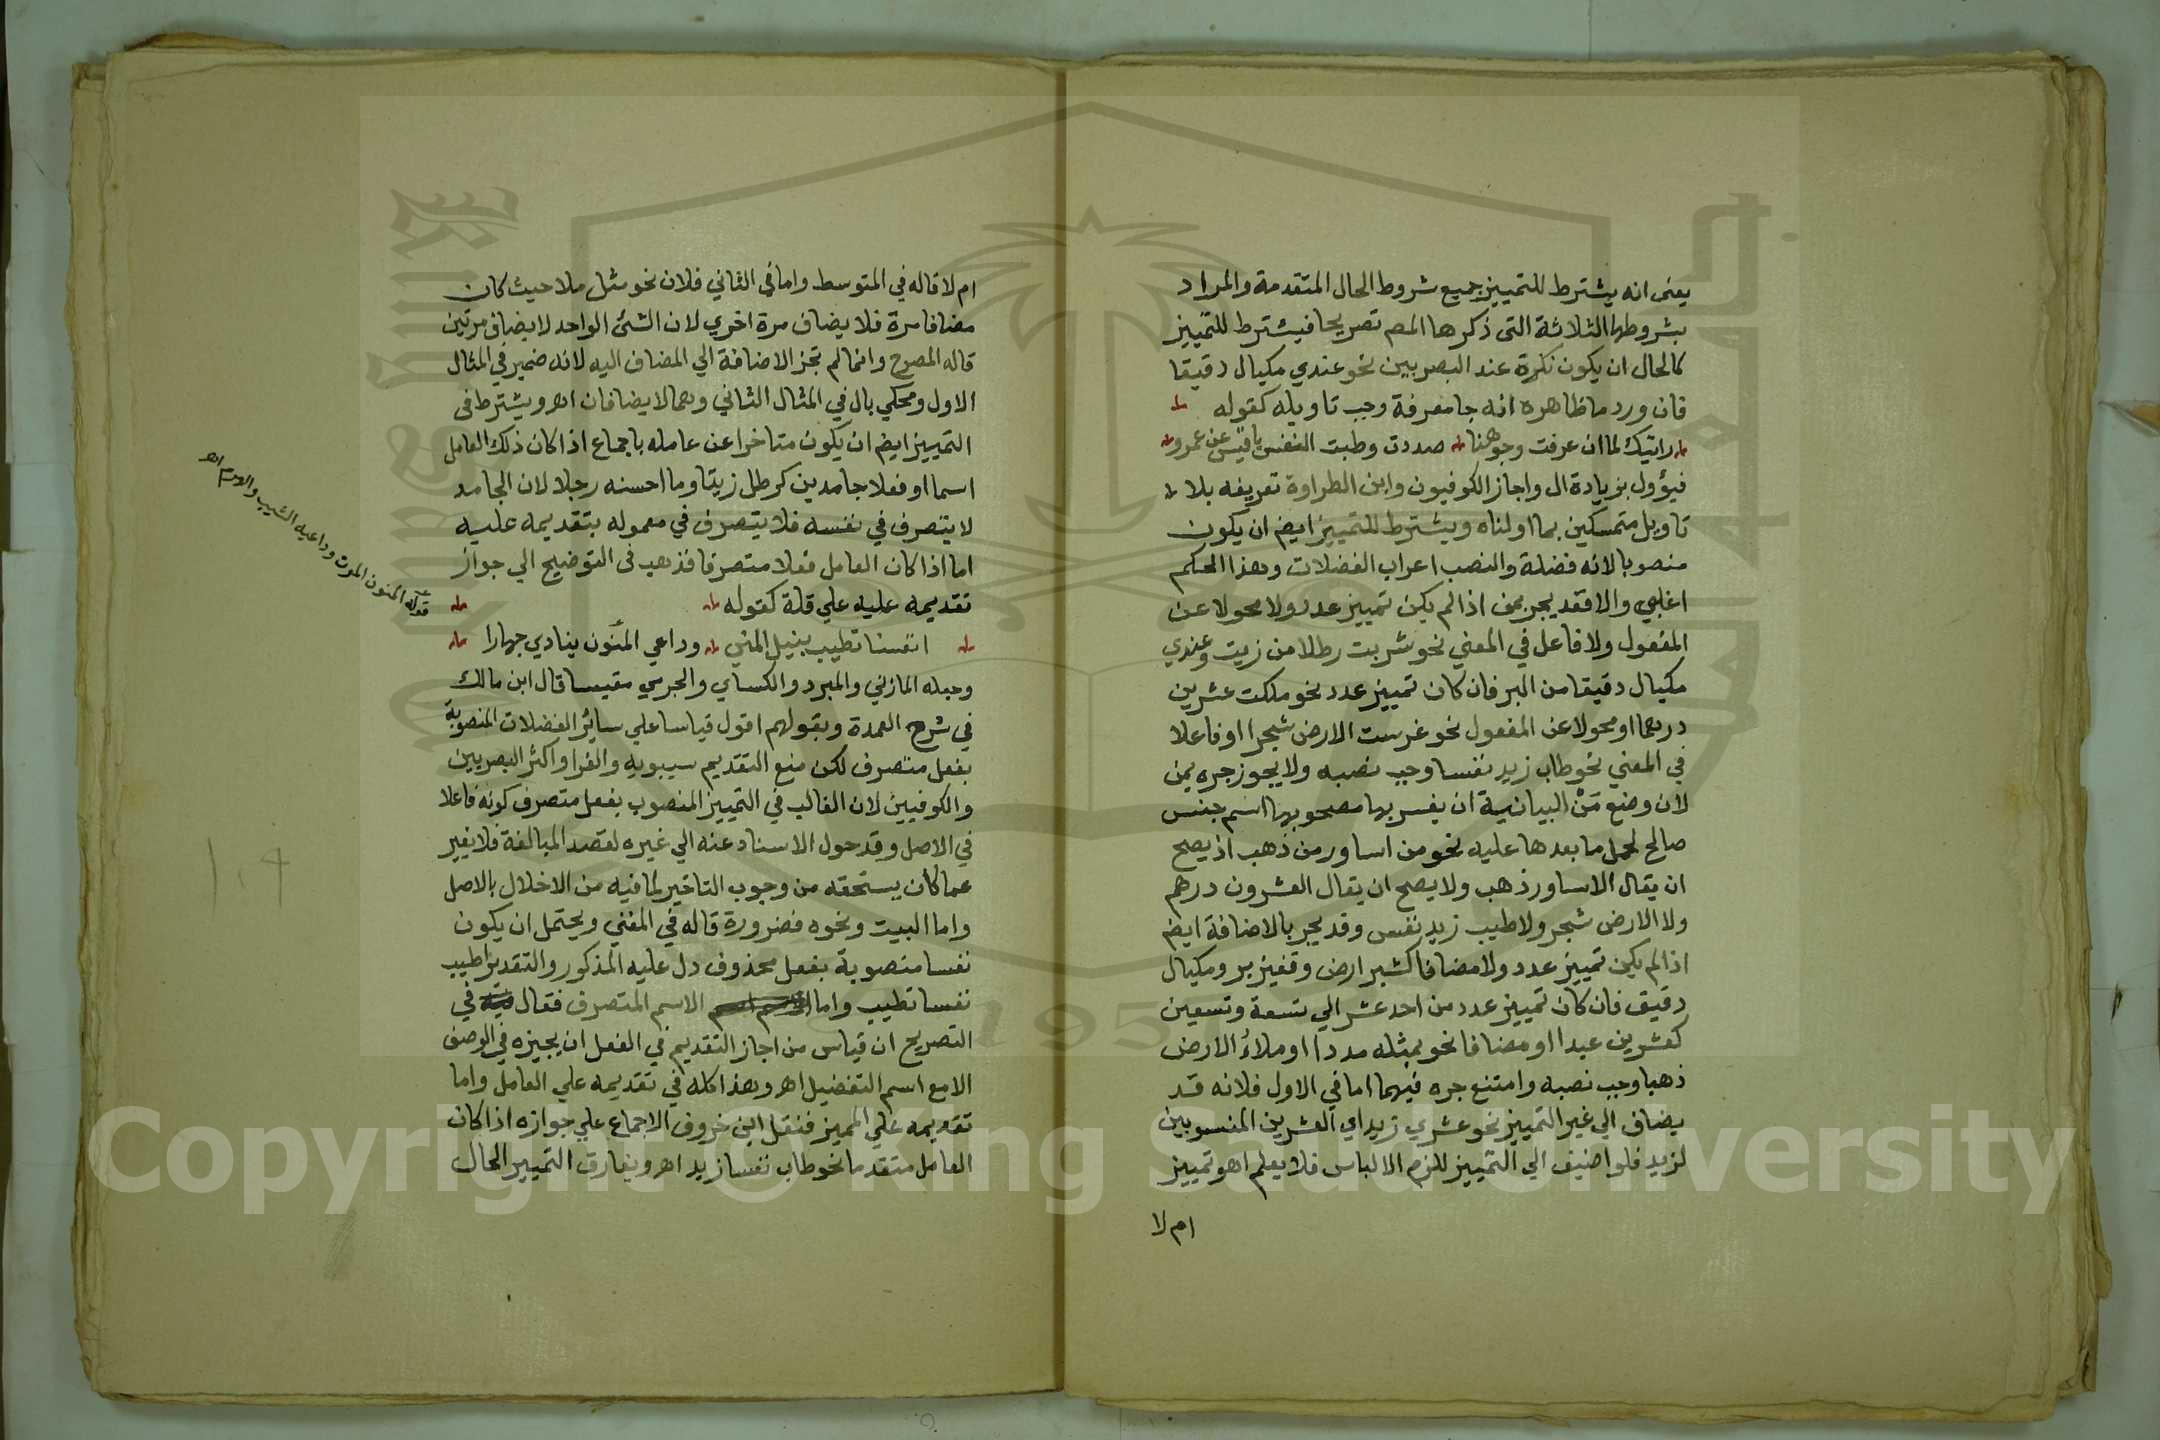 يعنى انه يشترط للتمييز جميع شروط الحال المتقدمة والمراد
بشروطها الثلاثة التى ذكرها المصم تصريحا فيشترط للتمييز
كالحال ان يكون نكرة عند البصريين نحو عندي مكيال دقيقا
فان ورد ما ظاهره انه جا معرفة وجب تاويله كقوله
رايتك لما ان عرفت وجوهنا صددت وطبت النفس ياقيس عن عمرو
فيؤول بزيادة ال واجاز الكوفيون وابن الطراوة تعريفه بلا
تاويل متمسكين بما اولناه ويشترط للتمييز ايضم ان يكون
منصوبا لانه فضلة والنصب اعراب الفضلات وهذا الحكم
اغلبي والا فقد يجر بمن اذا لم يكن تمييز عدد ولا محولا عن
المفعول ولا فاعل في المعني نحو شربت رطلا من زيت وعندي
مكيال دقيقا من البر فان كان تمييز عدد نحو ملكت عشرين
درهما او محولا عن المفعول نحو غرست الارض شجرا او فاعلا
في المعني نحو طاب زيد نفسا وجب نصبه ولا يجوز جره بمن
لان وضع مَنْ البيانية ان يفسر بها مصحوبها اسم جنس
صالح لحمل ما بعدها عليه نحو من اساور من ذهب اذ يصح
ان يقال الاساور ذهب ولا يصح ان يقال العشرون درهم
ولا الارض شجر ولا طيب زيد نفس وقد يجر بالاضافة ايضم
اذا لم يكن تمييز عدد ولا مضافا كشبر ارض وقفيز بر ومكيال
دقيق فان كان تمييز عدد من احد عشر الي تسعة وتسعين
كعشرين عبدا او مضافا نحو بمثله مددا او ملاءُ الارض
ذهبا وجب نصبه وامتنع جره فيهما اما في الاول فلانه قد
يضاف الي غير التمييز نحو عشري زيد اي العشرين المنسوبين
لزيد فلو اضيف الي التمييز للزم الالباس فلا يعلم اهو تمييز
ام لا
ام لا قاله في المتوسط واما في الثاني فلان نحو مثل ملا حيث كان
مضافا مرة فلا يضاف مرة اخري لان الشئ الواحد لا يضاف مرتين
قاله المصرح وانما لم تجز الاضافة الي المضاف اليه لانه ضمير في المثال
الاول ومحكي بال في المثال الثاني وهما لا يضافان اهـ ويشترط في
التمييز ايضم ان يكون متاخرا عن عامله باجماع اذا كان ذلك العامل
اسما او فعلا جامدين كرطل زيتا وما احسنه رجلا لان الجامد
لا يتصرف في نفسه فلا يتصرف في معموله بتقديمه عليه
اما اذا كان العامل فعلا متصرفا فذهب فى التوضيح الي جواز
تقديمه عليه علي قلة كقوله
انفسا تطيب بنيل المني وداعي المنون ينادي جهارا
وجعله المازني والمبرد والكساي والجرمي مقيسا قال ابن مالك
في شرح العمدة وبقولهم اقول قياسا علي سائر الفضلات المنصوبة
بفعل متصرف لكن منع التقديم سيبويه والفرا واكثر البصريين
والكوفيين لان الغالب في التمييز المنصوب بفعل متصرف كونه فاعلا
في الاصل وقد حول الاسناد عنه الي غيره لقصد المبالغة فلا يغير
عما كان يستحقه من وجوب التاخير لما فيه من الاخلال بالاصل
واما البيت ونحوه فضرورة قاله في المغني ويحتمل ان يكون
نفسا منصوبة بفعل محذوف دل عليه المذكور والتقدير اطيب
نفسا تطيب واما الاسم المتصرف فقال في
التصريح ان قياس من اجاز التقديم في الفعل ان يجيزه في الوصف
الا مع اسم التفضيل اهـ وهذا كله في تقديمه علي العامل واما
تقديمه علي المميز فنقل ابن خروف الاجماع علي جوازه اذا كان
العامل متقدما نحو طاب نفسا زيد اهـ ويفارق التمييز الحال
قوله المنون الموت وداعيه الشيب والهرم اهـ
١٠٩
Copyright © King Saud University
1957